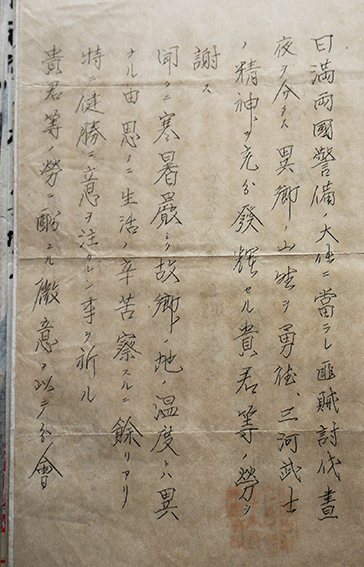 日満両國警備ノ大任ニ當ラレ匪賊討伐晝
夜ヲ分タズ異郷ノ山野ヲ勇徃、三河武士
ノ精神ヲ充分發輝セル貴君等ノ勞ヲ
謝ス
聞クニ寒暑嚴シク故郷ノ地ノ温度トハ異
ナル由思フニ生活ノ辛苦察スルニ餘リアリ
特ニ健勝ニ意ヲ注ガレン事ヲ祈ル
貴君等ノ勞ニ酬ユル微意ヲ以テ分會